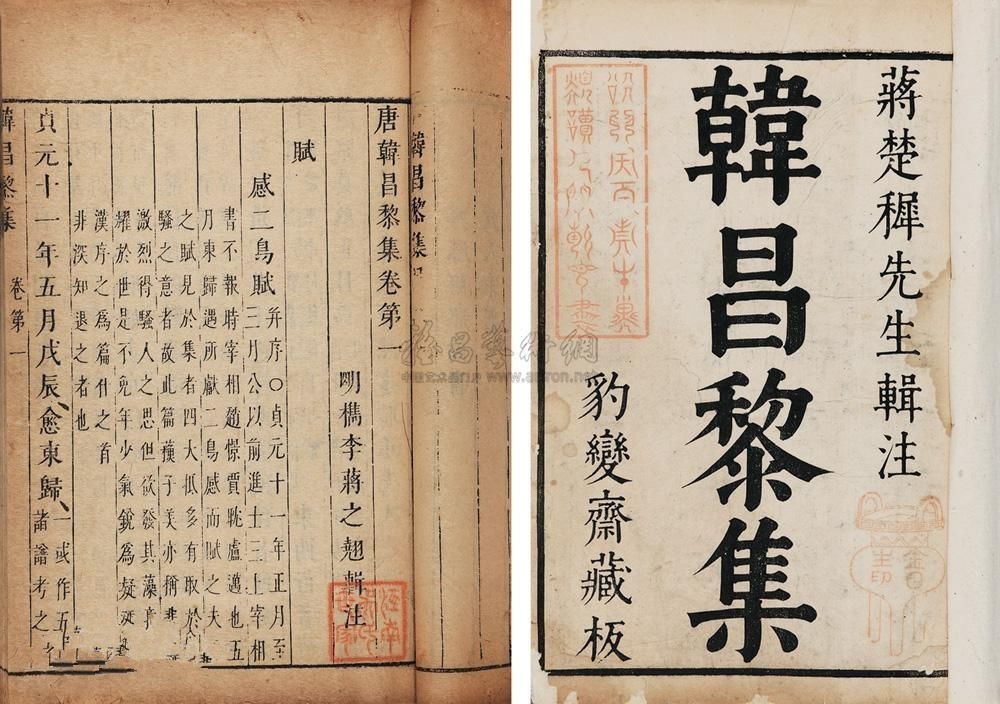 蔣楚穉先生輯注
韓昌黎集
豹變齋藏板
韓昌黎集
唐韓昌黎集卷第一
明檇李蔣之翹輯注
賦
感二鳥賦 并序○貞元十一年正月至
三月公以前進士三上宰相
書不報時宰相趙憬賈耽盧邁也五
月東歸遇所獻二鳥感而賦之夫
之賦見於集者四大抵多有取於
騷之意者故此篇蘇子美亦稱
激烈得騷人之思但欲發其藻
耀於世是不免年少氣銳爲疑
漢序之爲篇什之首
非深知退之者也
貞元十一年五月戊辰愈東歸 一或作五
諸論考之
韓昌黎集 卷第一
雅昌藝術網
www.artron.net